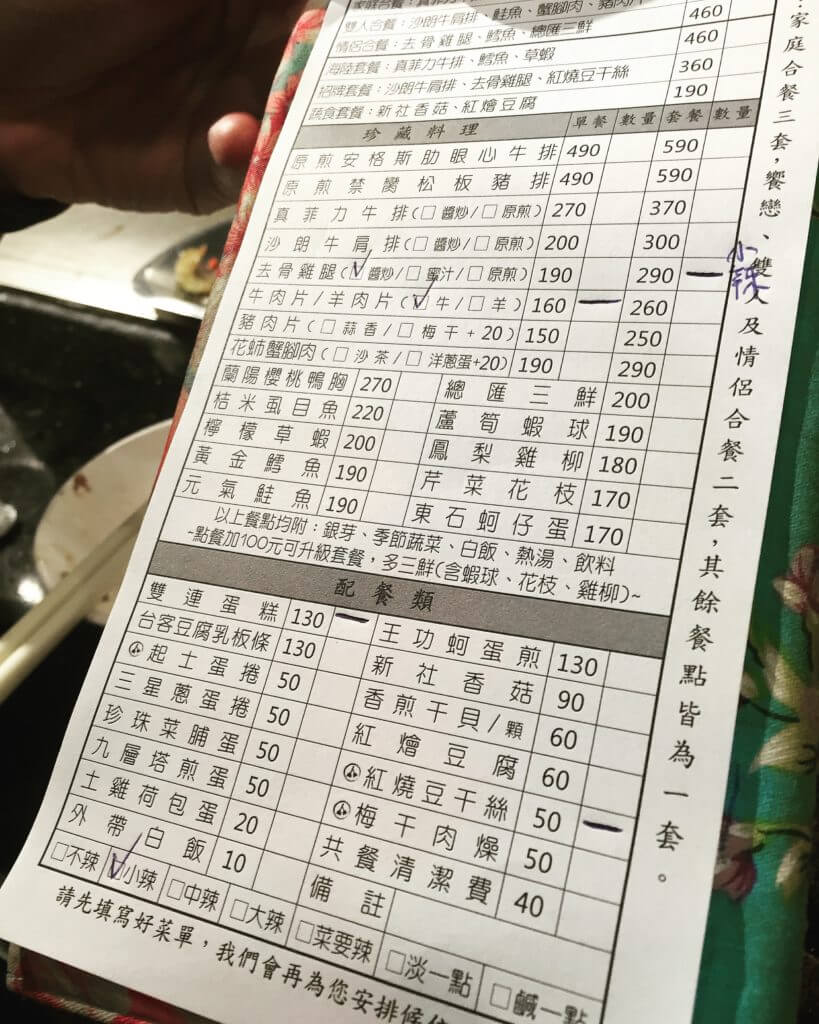 家庭合餐：真菲力
雙人合餐：沙朗牛肩排、鮭魚、蟹腳肉、豬肉片 460
情侶合餐：去骨雞腿、鱈魚、總匯三鮮 460
海陸套餐：真菲力牛排、鱈魚、草蝦 360
招牌套餐：沙朗牛肩排、去骨雞腿、紅燒豆干絲 190
蔬食套餐：新社香菇、紅燴豆腐
珍藏料理 單餐 數量 套餐 數量
原煎安格斯肋眼心牛排 490 590
原煎禁臠松板豬排 490 590
真菲力牛排(□醬炒/□原煎) 270 370
沙朗牛肩排(□醬炒/□原煎) 200 300
去骨雞腿(☑醬炒/□蜜汁/□原煎) 190 290 一 小辣
牛肉片/羊肉片(☑牛/□羊) 160 一 260
豬肉片(□蒜香/□梅干+20) 150 250
花蚶蟹腳肉(□沙茶/□洋蔥蛋+20) 190 290
蘭陽櫻桃鴨胸 270 總匯三鮮 200
桔米虱目魚 220 蘆筍蝦球 190
檸檬草蝦 200 鳳梨雞柳 180
黃金鱈魚 190 芹菜花枝 170
元氣鮭魚 190 東石蚵仔蛋 170
以上餐點均附：銀芽、季節蔬菜、白飯、熱湯、飲料
~點餐加100元可升級套餐，多三鮮(含蝦球、花枝、雞柳)~
配餐類
雙連蛋糕 130 一 王功蚵蛋煎 130
台客豆腐乳板條 130 新社香菇 90
起士蛋捲 50 香煎干貝/顆 60
三星蔥蛋捲 50 紅燴豆腐 60
珍珠菜脯蛋 50 紅燒豆干絲 50 一
九層塔煎蛋 50 梅干肉燥 50
土雞荷包蛋 20 共餐清潔費 40
外帶白飯 10 備註
□不辣 ☑小辣 □中辣 □大辣 □菜要辣 □淡一點 □鹹一點
請先填寫好菜單，我們會再為您安排候位
：家庭合餐三套，饗戀、雙人及情侶合餐二套，其餘餐點皆為一套。